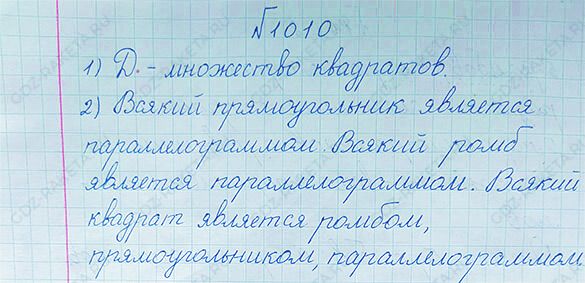 №1010
1) D. - множество квадратов.
2) Всякий прямоугольник является
параллелограммом. Всякий ромб
является параллелограммом. Всякий
квадрат является ромбом,
прямоугольником, параллелограммом